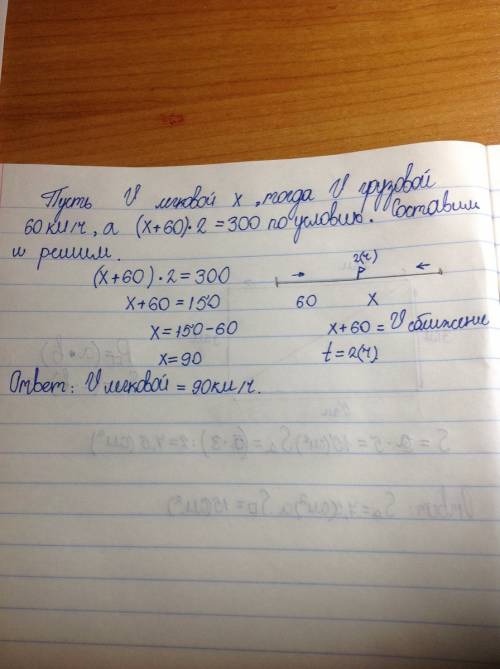 Пусть V легковой x, тогда V грузовой
60 км/ч, а (x+60)·2=300 по условию. Составим
и решим.
(x+60)·2=300
x+60=150
x=150-60
x=90
Ответ: V легковой = 90км/ч.
2(ч)
60 x
x+60=V сближение
t=2(ч)